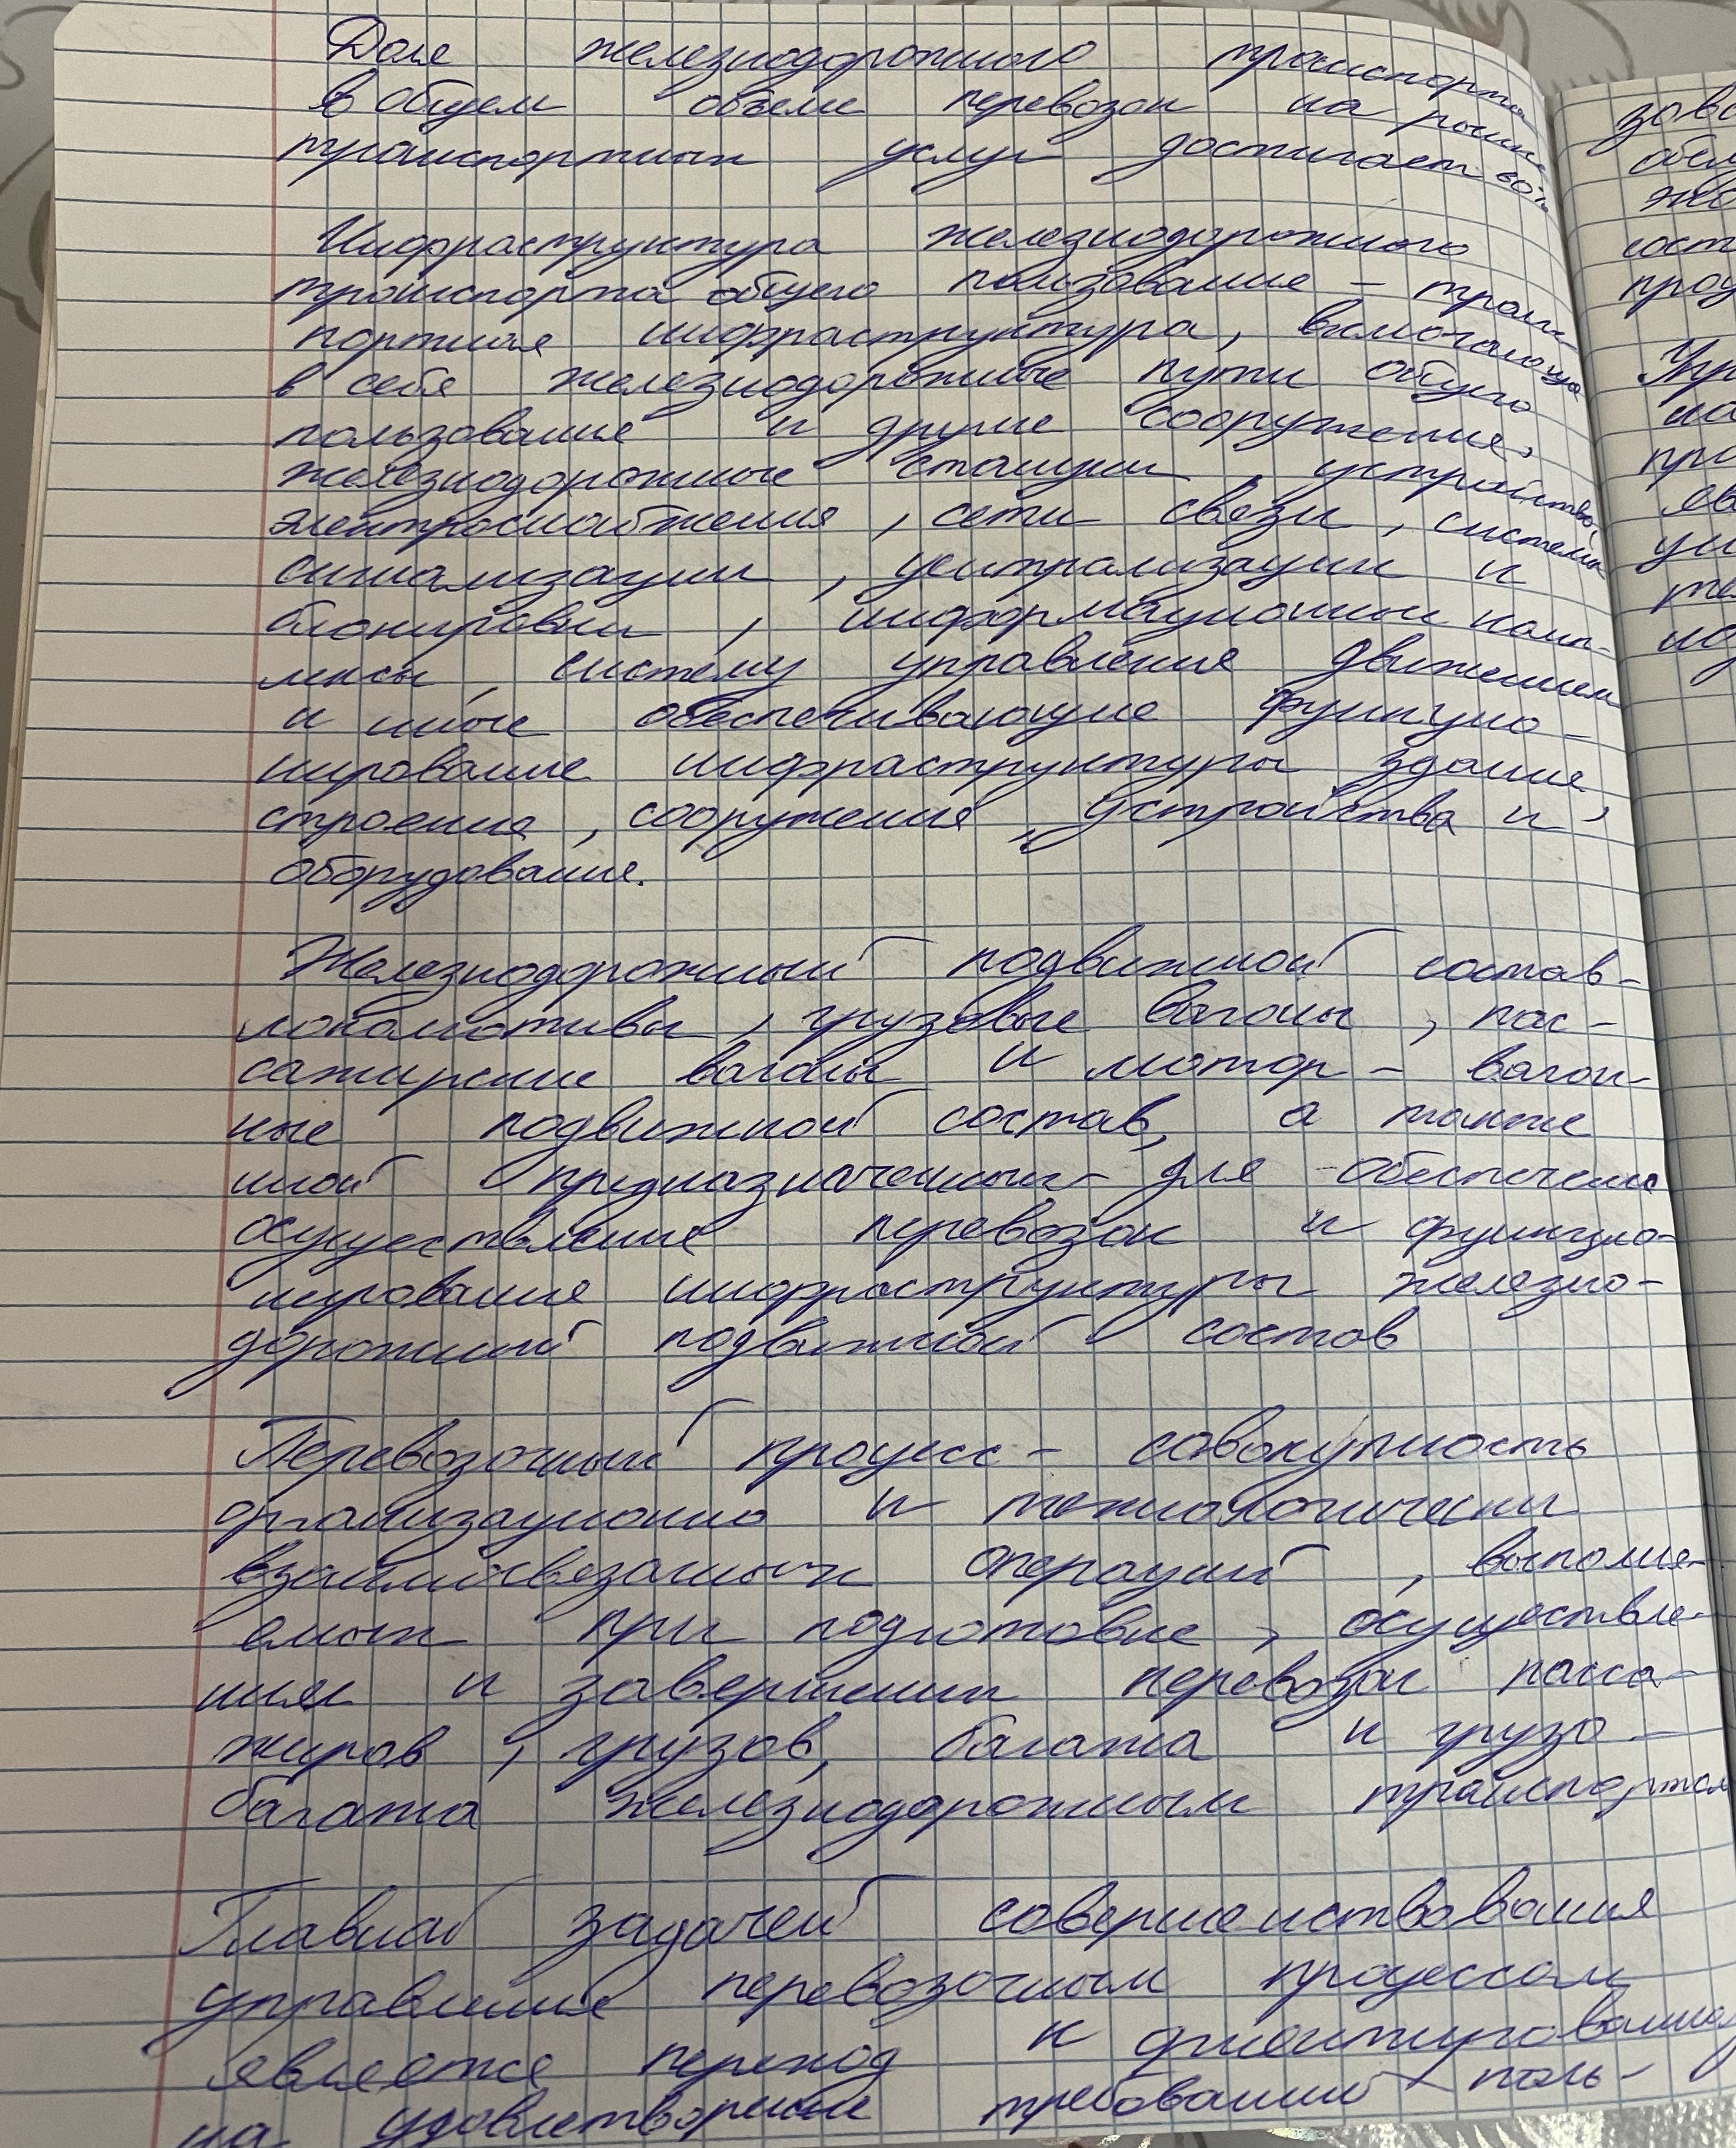 Доля железнодорожного транспорта
в общем объеме перевозок на рынке
транспортных услуг достигает 80%
Инфраструктура железнодорожного
транспорта общего пользования – транс-
портная инфраструктура, включающая
в себя железнодорожные пути общего
пользования и другие сооружения,
железнодорожные станции, устройства
электроснабжения, сети связи, системы
сигнализации, централизации и
блокировки, информационные комп-
лексы, систему управления движением
и иные обеспечивающие функцио-
нирование инфраструктуры здания,
строения, сооружения, устройства и
оборудование.
Железнодорожный подвижной состав-
локомотивы, грузовые вагоны, пас-
сажирские вагоны и мотор-вагон-
ные подвижной состав, а также
иной предназначенный для обеспечения
осуществления перевозок и функцио-
нирования инфраструктуры железно-
дорожный подвижной состав
Перевозочный процесс - совокупность
организационно и технологически
взаимосвязанных операций, выполня-
емых при подготовке, осуществле-
нии и завершении перевозок пасса-
жиров, грузов, багажа и грузо-
багажа железнодорожным транспортом
Главной задачей совершенствования
управления перевозочным процессом
является переход к ориентированию
на удовлетворение требований поль-
зов